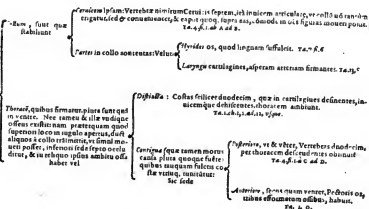 Cervicem ipsam: Vertebræ nimirum Cerui: ie septem, ieb inuicem articulatæ, vt collū nō tantùm
erigatur, sed & conuoluatur, & caput quoq, supra eas, cōmodè in oēs figuras moueri possit.
Ta.4.f.1.ab A ad B.
Collum, sunt quæ
stabiliunt
Partes in collo contentas: Velut
Hyoides os, quod linguam suffulcit. Ta.7 f.6
Laryngis cartilagines, asperam arteriam firmantes. Ta.15,c
Thorace, quibus firmatur, plura sunt quā
in ventre. Nec tamen & illæ vndique
osseus existit: nam præterquam quod
superiori loco in iugulo apertus, ductus
aliquos è collo trāsmittit, vt simul mo-
ueri posset, inferiori sede septo occlu
ditur, & in vtroque ipsius ambitu ossa
habet vel
Distantia: Costas scilicet duodecim, quæ in cartilagines desinentes, in-
uicémque dehiscentes, thoracem ambiunt.
Contigua quæ tamen motus
causa plura quoque fuére:
quibus tanquam fulcris co-
stæ vtrinq, tuentur:
Sic sede
Posteriore, vt & vêter, Vertebras duodecim,
per thoracem descendentes obtinuit
Ta.4.f.1.à C ad D.
Anteriore, secus quam venter, Pectoris os,
tribus efformatum ossibus, habuit.